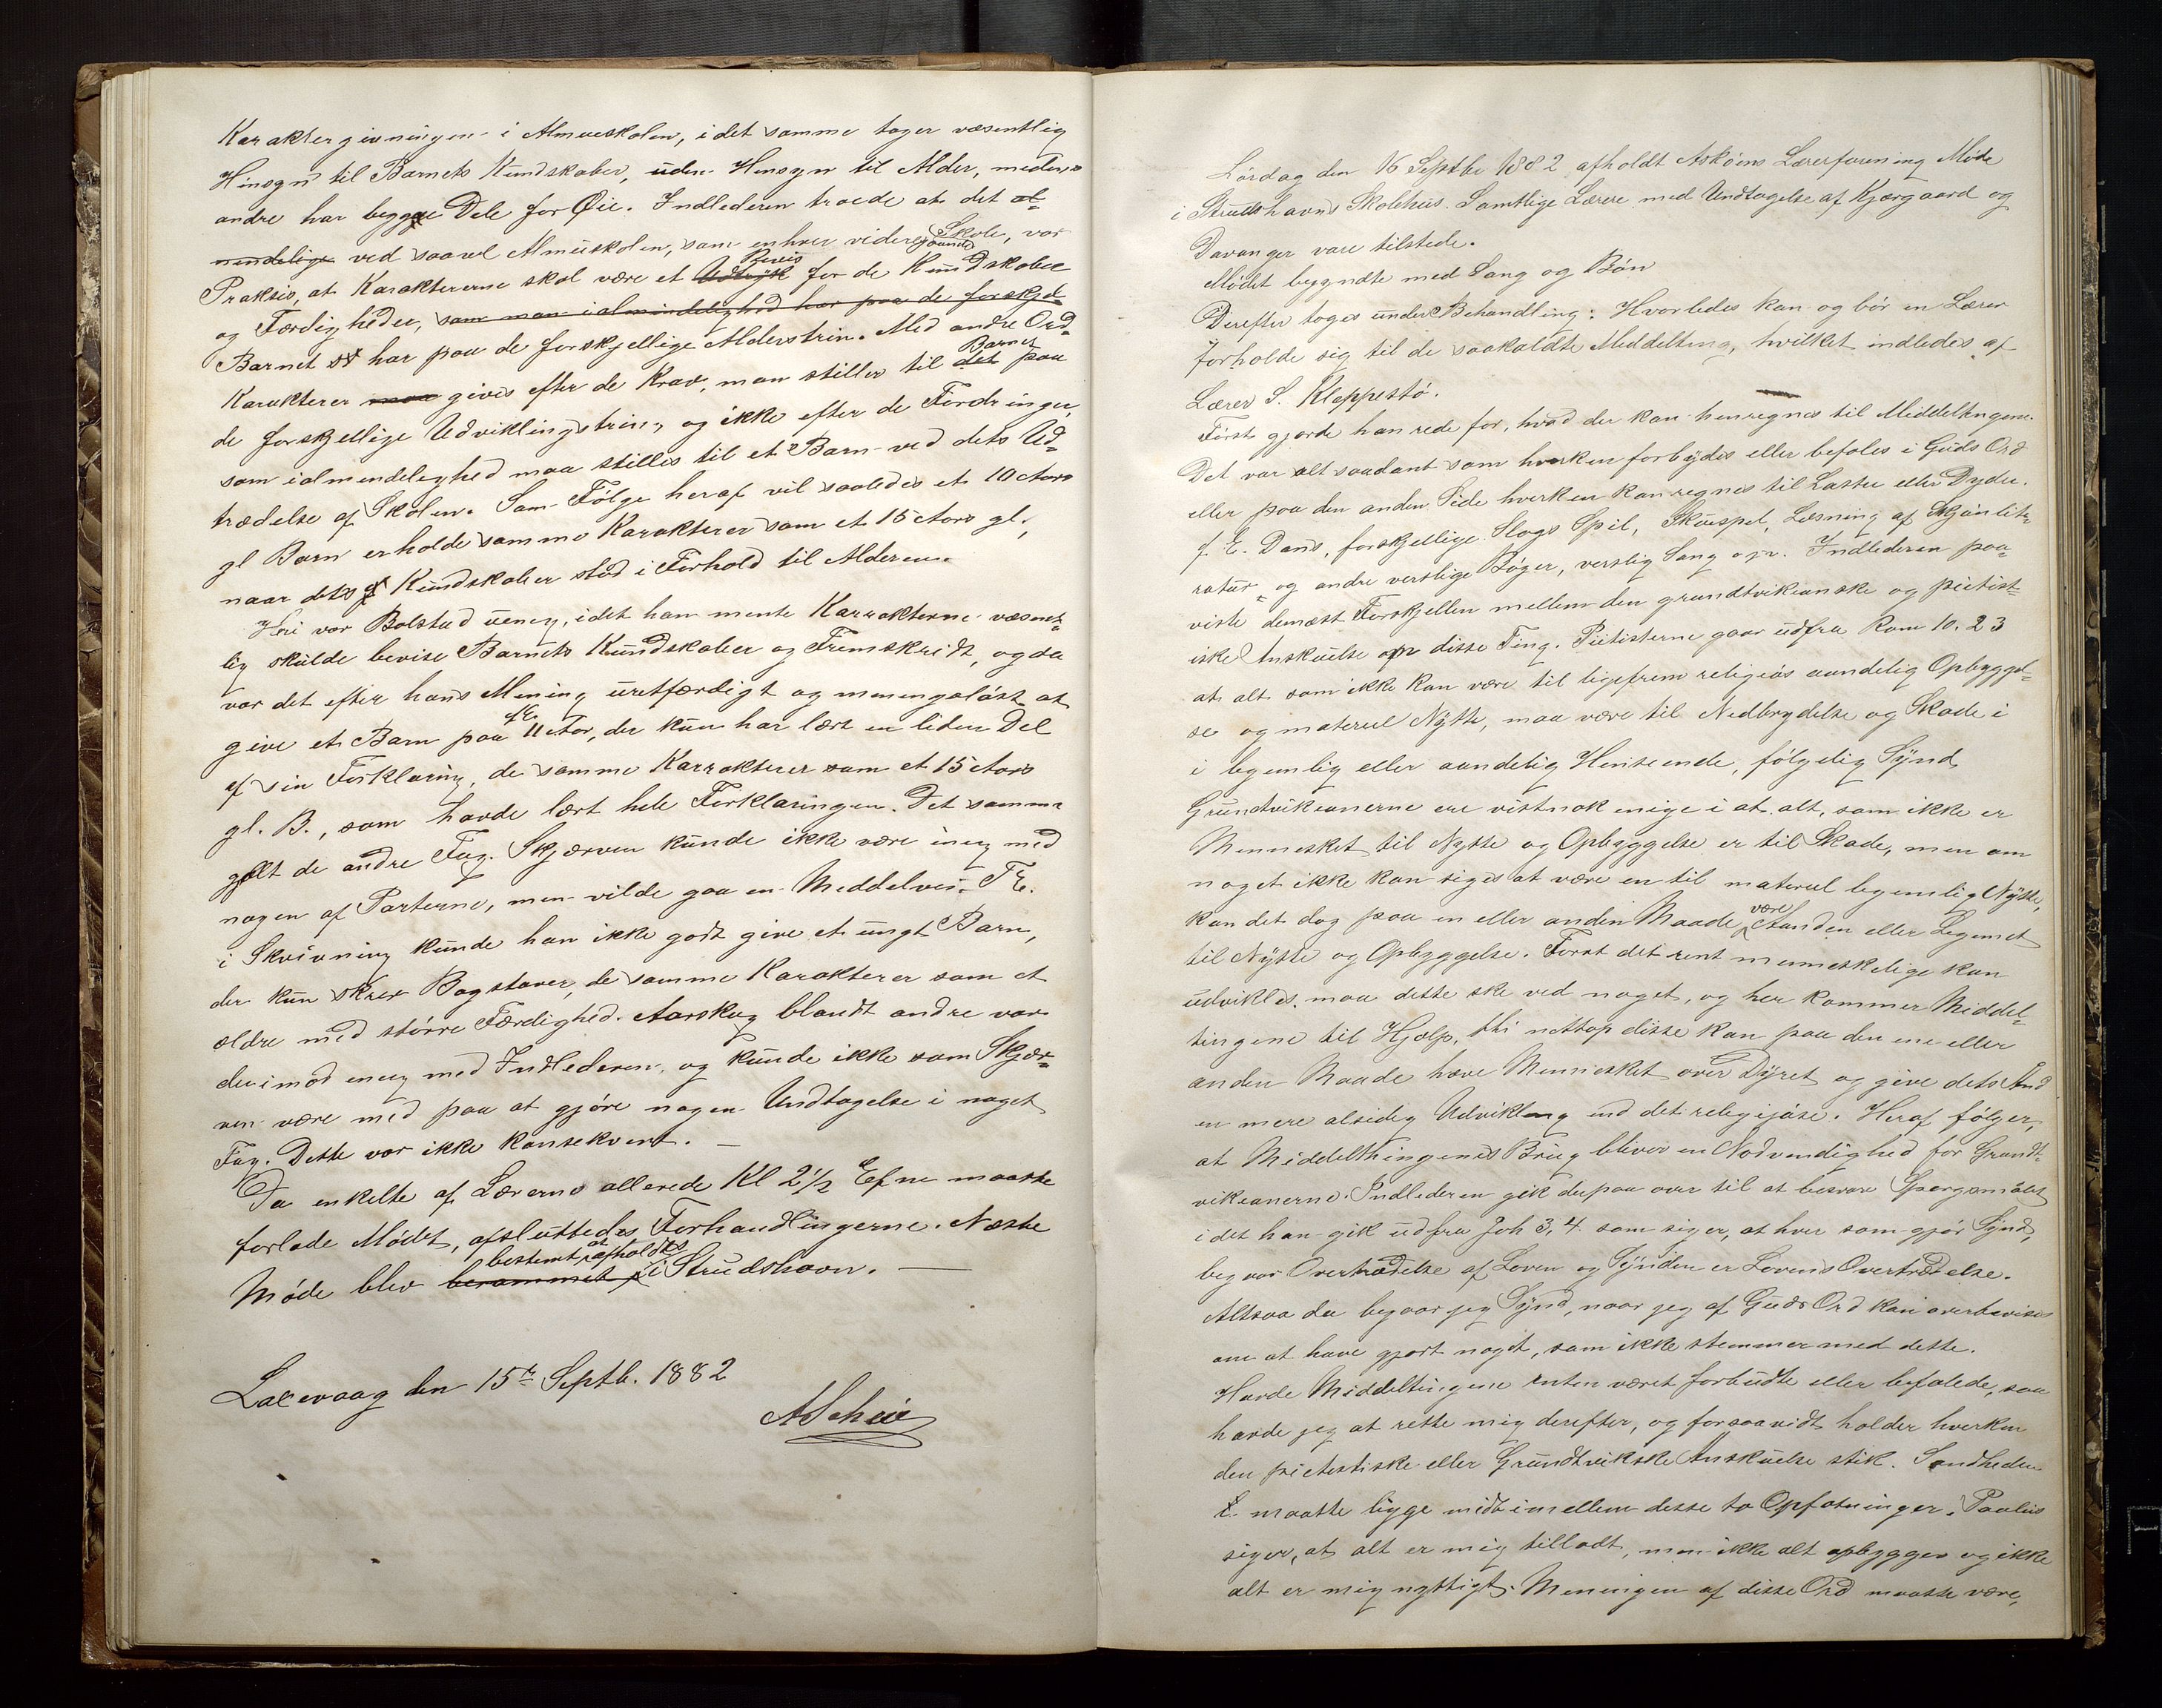 Karaktergivningen i Almueskolen, idet somme tager væsentlig
Hinsyn til Barnets Kundskaber, uden Hensyn til Alder, medens
andre har begge Dele for Øie. Indlederen troede at det al-
mendelige ved saavel Almuskolen, som enhver videregaaende Skole, var
Praksis, at Karaktererne skal være et Udtryk Bevis for de Kundskaber
og Færdigheder, som man i almindelighed har paa de forskjel-
Barnet har paa de forskjellige Alderstrin. Med andre Ord-
Karakterer maa gives efter de Krav, man stiller til det Barnet paa
de forskjellige Udviklingstrin, og ikke efter de Fordringer,
som ialmendeleghed maa stilles til et Barn ved dets Ud-
trædelse af Skolen. Som Følge heraf vil saaledes et 10 Aars
gl Barn erholde samme Karakterer som et 15 Aars gl.,
naar dets Kundskaber stod i Forhold til Alderen.
Heri var Bolstad ueneg, idet han mente Karrakterne væsent-
lig skulde bevise Barnets Kundskaber og Fremskridt, og da
var det efter hans Mening uretfærdigt og meningsløst at
give et Barn paa f.E. 11 Aar, der kun har lært en liden Del
af sin Forklaring, de samme Karrakterer som et 15 Aars
gl. B., som havde lært hele Forklaringen. Det samme
gjalt de andre Fag. Skjærven kunde ikke være eneg med
nogen af Parterne, men vilde gaa en Meddelvei. F.E.
i Skrivning kunde han ikke godt give et ungt Barn,
der kun skrev Bogstaver, de samme Karakterer som et
ældre med større Færdighed. Aarskog blandt andre var
derimod eneg med Indlederen, og kunde ikke som Skjær-
ven være med paa at gjøre nogen Undtagelse i noget
Fag. Dette var ikke konsekvent. —
Da enkelte af Lærerne allerede Kl 2½ Efm maatte
forlade Mødet, afsluttedes Forhandlingerne. Næste
Møde blev berammet bestemt at afholdes i Strudshavn. —
Laxevaag den 15de Septb. 1882
AScheie
Lørdag den 16 Septbr 1882 afholdt Askøens Lærerforening Møde
i Strudshavns Skolehus. Samtlige Lærere med Undtagelse af Kjærgaard og
Davanger vare tilstede.
Mødet begyndte med Sang og Bøn
Derefter toges under Behandling: Hvorledes kan og bør en Lærer
forholde sig til de saakaldte Meddelting, hvilket indledes af
Lærer S. Kleppestø.
Først gjorde han rede for, hvad der kan henregnes til Middeltngene.
Det var alt saadant som hverken forbydes eller befales i Guds Ord
eller paa den anden Side hverken kan regnes til Laster eller Dyder.
f. E. Dans, forskjellige Slags Spil, Skuespel, Læsning af Skjønlit-
ratur- og andre verslige Bøger, verslig Sang o.s.v. Indlederen paa-
viste dernæst Forskjellen mellem den grundtvikianske og pietist-
iske Anskuelse om disse Ting. Pietisterne gaar udfra Rom 10. 23
at alt som ikke kan være til ligefrem religiøs aandelig Opbyggel-
se og materiel Nytte, maa være til Nedbrydelse og Skade i
i legemlig eller aandelig Henseende, følgelig Synd.
Grundtvikeanerne ere vistnok enige i at alt, som ikke er
Mennesket til Nytte og Opbyggelse er til Skade, men om
noget ikke kan siges at være en til materiel legemlig Nytte,
kan det dog paa en eller anden Maade være Aanden eller Legemet
til Nytte og Opbyggelse. Forat det rent menneskelige kan
udvikles, maa dette ske ved noget, og her kommer Middel-
tingene til Hjælp, thi nettop disse kan paa den ene eller
anden Maade hæve Mennesket over Dyret og give dets Aand
en mere alsidig Udvikling end det religiøse. Heraf følger,
at Middelthingenes Brug bliver en Nødvendighed for Grundt-
vikeanerne. Indlederen gik derpaa over til at besvare Spørgsmålet
idet han gik udfra Joh 3,4 som siger, at hver som gjør Synd,
begaar Overtrædelse af Loven og Synden er Lovens Overtrædelse.
Altsaa da begaar jeg Synd, naar jeg af Guds Ord kan overbevises
om at have gjort noget, som ikke stemmer med dette.
Havde Middeltingene enten været forbudte eller befalede, saa
havde jeg at rette mig derefter, og forsaavidt holder hverken
den pietestiske eller Grundtvikske Anskuelse stik. Sandheden
maatte ligge midt imellem desse to Opfatninger. Paulus
siger, at alt er mig tilladt, men ikke alt opbygger og ikke
alt er mig nyttigt. Meningen af disse Ord maatte være,